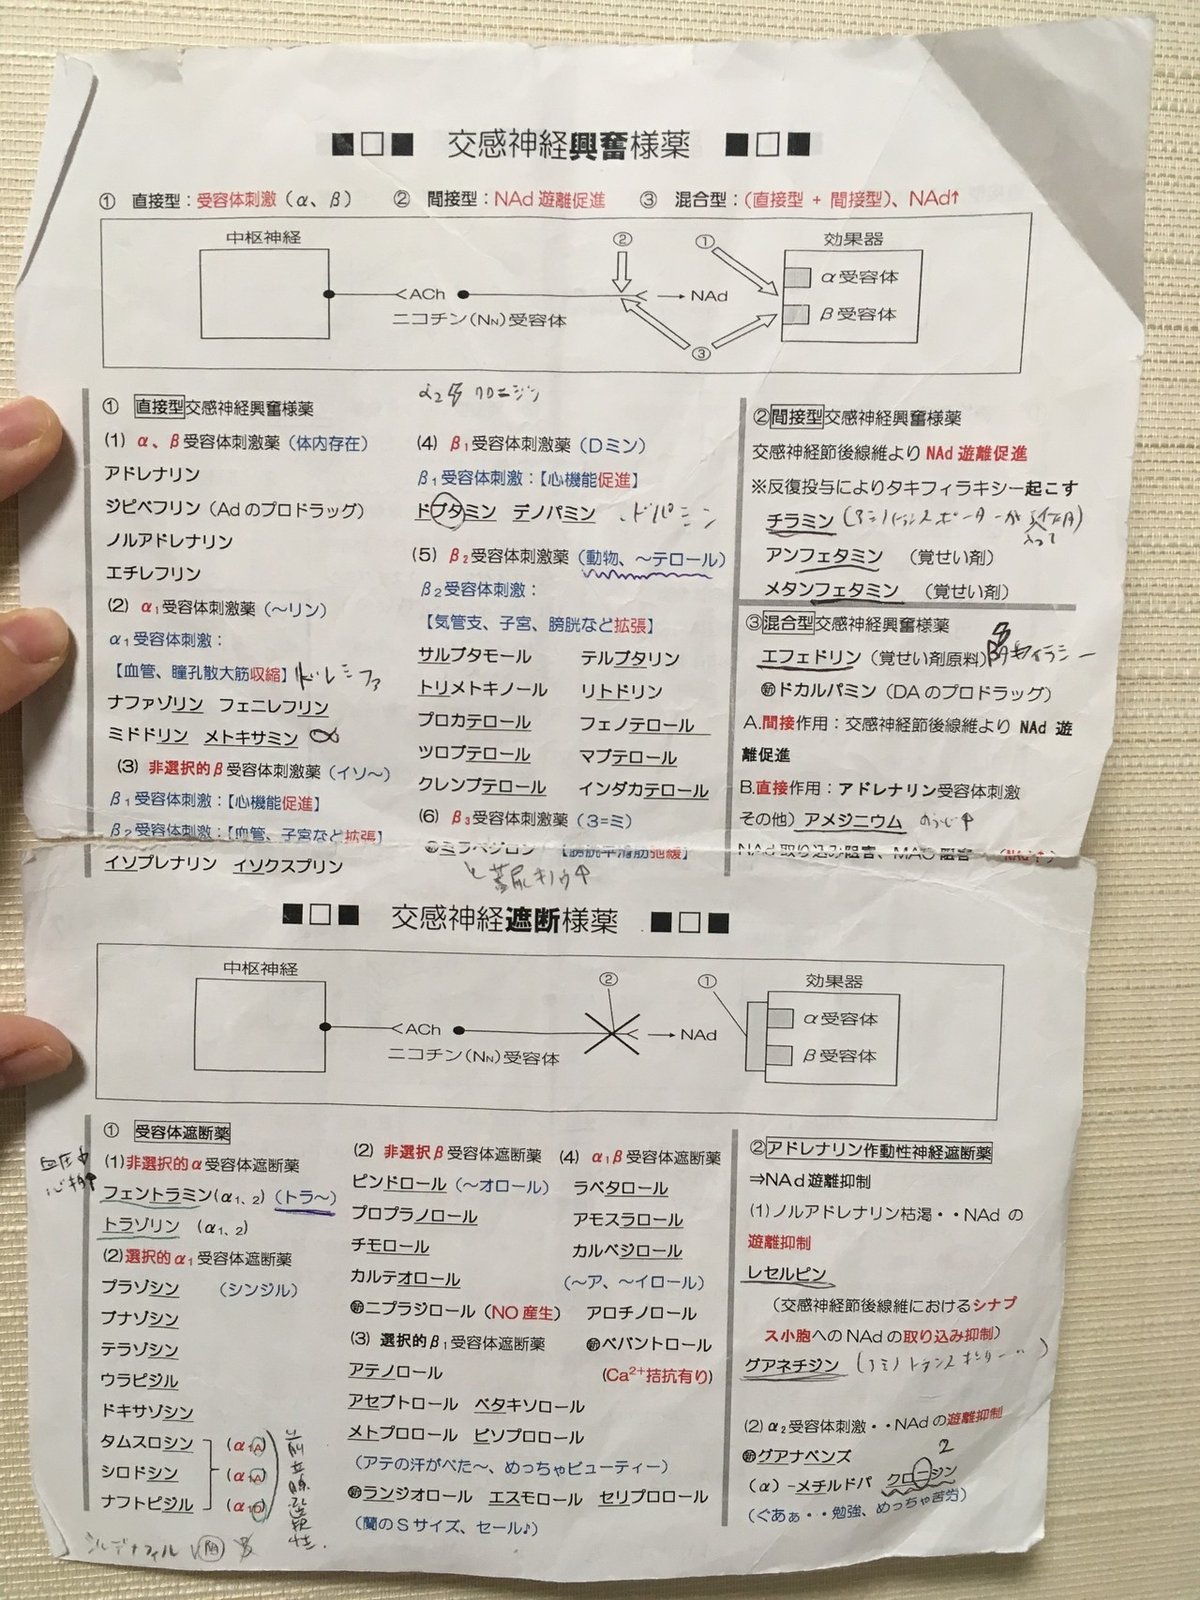 ■□■ 交感神経興奮様薬 ■□■
① 直接型：受容体刺激（α、β） ② 間接型：NAd 遊離促進 ③ 混合型：(直接型 + 間接型)、NAd↑
中枢神経
ACh
ニコチン(NN)受容体
②
①
③
NAd
効果器
α受容体
β受容体
① 直接型交感神経興奮様薬
(1) α、β受容体刺激薬（体内存在）
アドレナリン
ジピベフリン（Ad のプロドラッグ）
ノルアドレナリン
エチレフリン
(2) α₁受容体刺激薬（～リン）
α₁受容体刺激：
【血管、瞳孔散大筋収縮】
ナファゾリン フェニレフリン
ミドドリン メトキサミン
(3) 非選択的β受容体刺激薬（イソ～）
β₁受容体刺激：【心機能促進】
β₂受容体刺激：【血管、子宮など拡張】
イソプレナリン イソクスプリン
α₂ クロニジン
(4) β₁受容体刺激薬（Dミン）
β₁受容体刺激：【心機能促進】
ドブタミン デノパミン ドパミン
(5) β₂受容体刺激薬（動物、～テロール）
β₂受容体刺激：
【気管支、子宮、膀胱など拡張】
サルブタモール テルブタリン
トリメトキノール リトドリン
プロカテロール フェノテロール
ツロブテロール マブテロール
クレンブテロール インダカテロール
(6) β₃受容体刺激薬（3=ミ）
㊟ミラベグロン 【膀胱平滑筋弛緩】
蓄尿キノウ↑
②間接型交感神経興奮様薬
交感神経節後線維より NAd 遊離促進
※反復投与によりタキフィラキシー起こす
チラミン (アミントランスポーターが
アンフェタミン （覚せい剤）
メタンフェタミン （覚せい剤）
③混合型交感神経興奮様薬
エフェドリン（覚せい剤原料）
㊟ドカルパミン（DAのプロドラッグ）
A.間接作用：交感神経節後線維より NAd 遊
離促進
B.直接作用：アドレナリン受容体刺激
その他）アメジニウム
NAd 取り込み阻害、MAO 阻害 （NAd↑）
■□■ 交感神経遮断様薬 ■□■
中枢神経
ACh
ニコチン(NN)受容体
②
①
NAd
効果器
α受容体
β受容体
① 受容体遮断薬
血圧↓
(1)非選択的α受容体遮断薬
フェントラミン(α₁、₂)（トラ～）
トラゾリン （α₁、₂）
(2)選択的α₁受容体遮断薬
プラゾシン （シンジル）
ブナゾシン
テラゾシン
ウラピジル
ドキサゾシン
タムスロシン （α₁A）
シロドシン （α₁A）
ナフトピジル （α₁D）
前立腺選択性
シルデナフィル
(2) 非選択β受容体遮断薬
ピンドロール（～オロール）
プロプラノロール
チモロール
カルテオロール
㊟ニプラジロール（NO 産生）
(3) 選択的β₁受容体遮断薬
アテノロール
アセブトロール ベタキソロール
メトプロロール ビソプロロール
（アテの汗がべた～、めっちゃビューティー）
㊟ランジオロール エスモロール セリプロロール
（蘭のSサイズ、セール♪）
(4) α₁β受容体遮断薬
ラベタロール
アモスラロール
カルベジロール
（～ア、～イロール）
アロチノロール
㊟ベバントロール
(Ca²⁺拮抗有り)
②アドレナリン作動性神経遮断薬
⇒NAd遊離抑制
(1) ノルアドレナリン枯渇・・NAd の
遊離抑制
レセルピン
（交感神経節後線維におけるシナプ
ス小胞への NAd の取り込み抑制）
グアネチジン (アミントランスポーター…)
(2) α₂受容体刺激・・NAdの遊離抑制
㊟グアナベンズ
（α）-メチルドパ クロニジン
2
（ぐあぁ・・勉強、めっちゃ苦労）